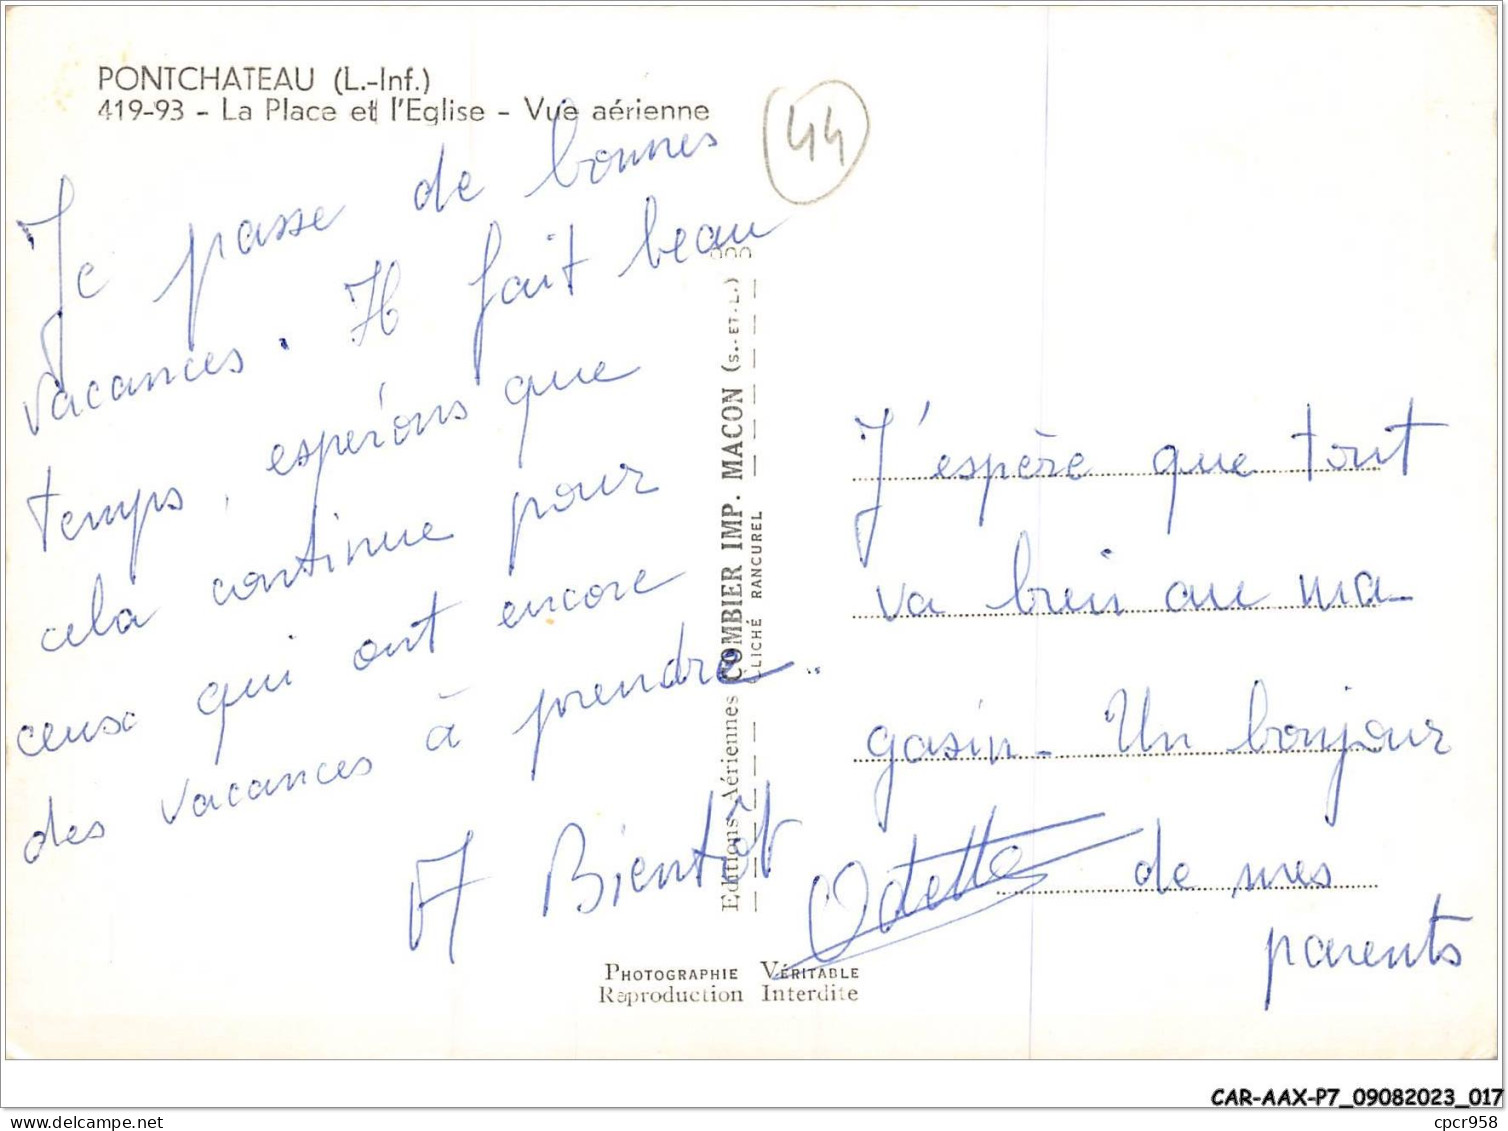 PONTCHATEAU (L.-Inf.)
419-93 - La Place et l'Eglise - Vue aérienne
44
Je passe de bonnes
vacances. Il fait beau
temps, espérons que
cela continue pour
ceux qui ont encore
des vacances à prendre..
A Bientôt
Odette
J'espère que tout
va bien au ma-
gasin - Un bonjour
de mes
parents
Editions Aériennes COMBIER IMP. MACON (S.-ET-L.)
CLICHÉ RANCUREL
PHOTOGRAPHIE VÉRITABLE
Reproduction Interdite
CAR-AAX-P7_09082023_017
cpcr958